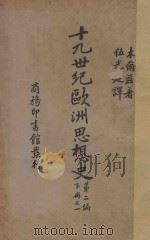 木爾茲著
伍光建譯
十九世紀歐洲思想史
第二編
下冊之一
商務印書館發行